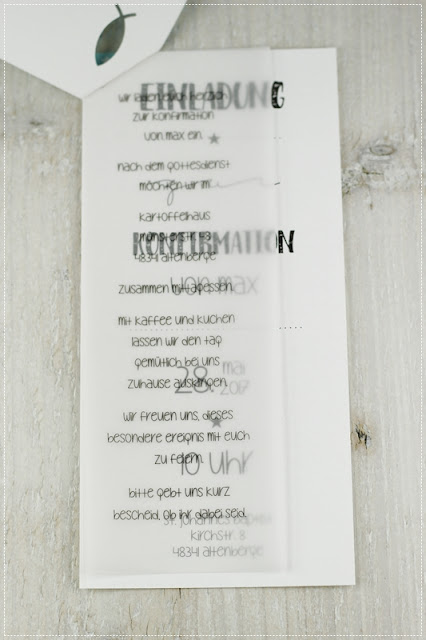 EINLADUNG
wir laden euch herzlich
zur konfirmation
von max ein.
nach dem gottesdienst
möchten wir im
kartoffelhaus
münsterstr. 43
48341 altenberge
zusammen mittagessen.
mit kaffee und kuchen
lassen wir den tag
gemütlich bei uns
zuhause ausklingen.
wir freuen uns, dieses
besondere ereignis mit euch
zu feiern.
bitte gebt uns kurz
bescheid, ob ihr dabei seid.
zur
KONFIRMATION
von max
28. mai
2017
10 uhr
st. johannes baptist
kirchstr. 8
48341 altenberge